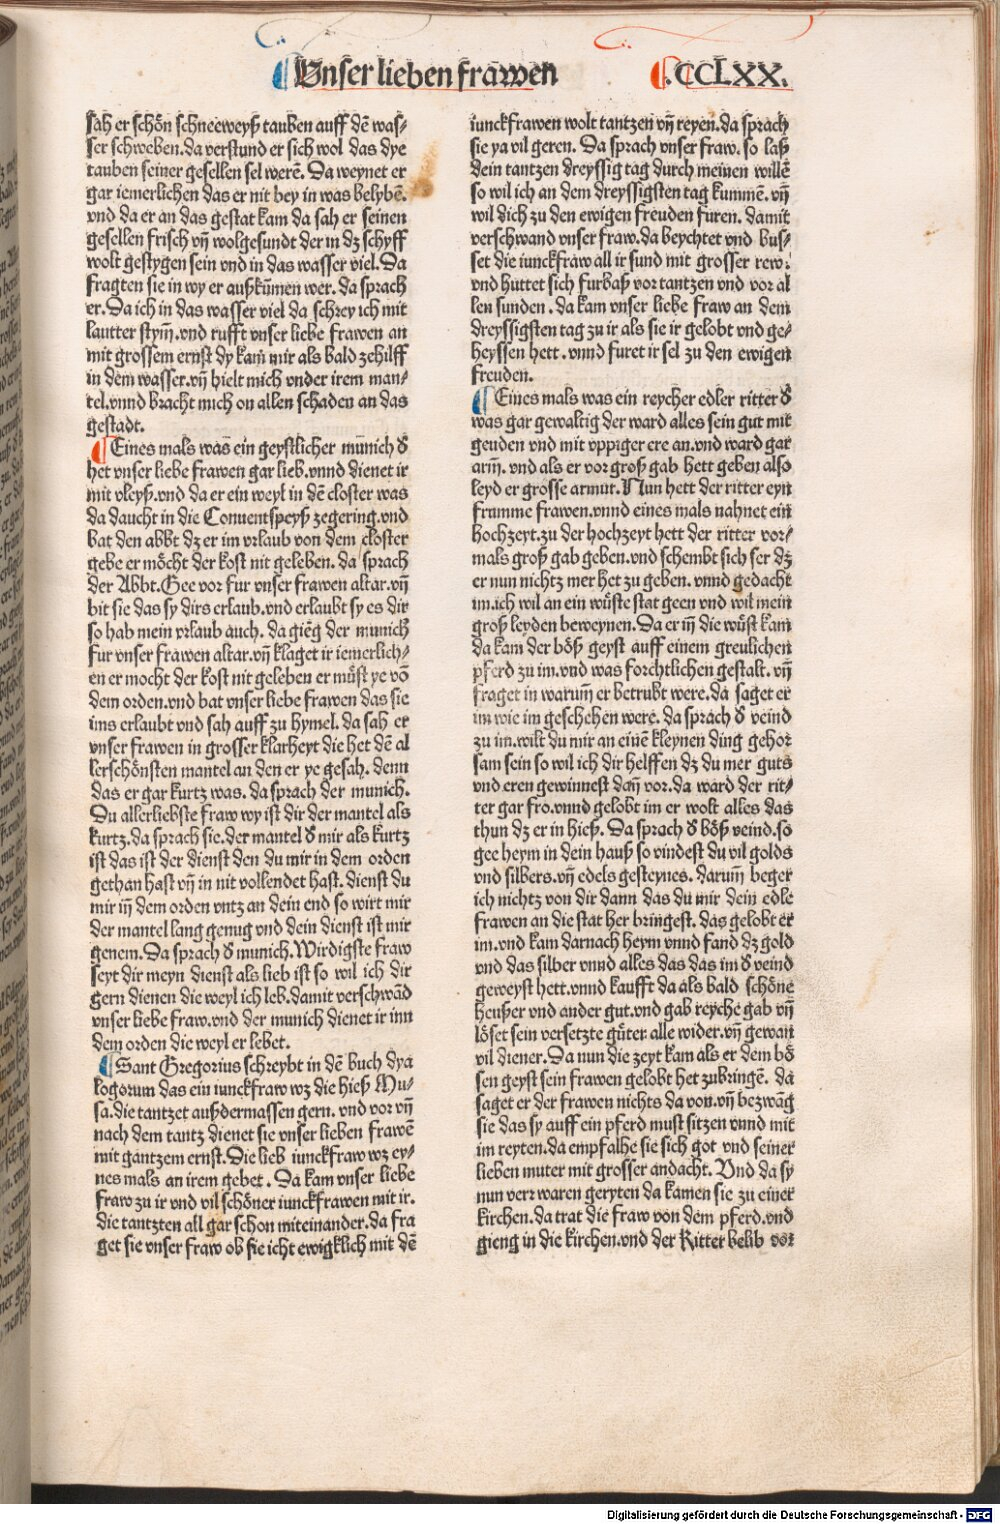 Unser lieben frawen .CCLXX.
sah er schön schneeweyß tauben auff dē was/
ser schweben.da verstund er sich wol das dye
tauben seiner gesellen sel werē. Da weynet er
gar iemerlichen das er nit bey in was belybē.
vnd da er an das gestat kam da sah er seinen
gesellen frisch vñ wolgesundt der in dz schyff
wolt gestygen sein vnd in das wasser viel. Da
fragten sie in wy er außkūmen wer. da sprach
er. Da ich in das wasser viel da schrey ich mit
lautter stym̄.vnd rufft vnser liebe frawen an
mit grossem ernst dy kam̄ mir als bald zehilff
in dem wasser.vñ hielt mich vnder irem man/
tel.vnnd bracht mich on allen schaden an das
gestadt.
Eines mals was ein geystlicher münich d̕
het vnser liebe frawen gar lieb.vnnd dienet ir
mit vleyß.vnd da er ein weyl in dē closter was
da daucht in die Conuentspeyß zegering.vnd
bat den abbt dz er im vrlaub von dem closter
gebe er möcht der kost nit geleben. da sprach
der Abbt. Gee vor fur vnser frawen altar.vñ
bit sie das sy dirs erlaub.vnd erlaubt sy es dir
so hab mein vrlaub auch. da gieng der munich
fur vnser frawen altar.vñ klaget ir iemerlich/
en er mocht der kost nit geleben er müst ye vō
dem orden.vnd bat vnser liebe frawen das sie
ims erlaubt vnd sah auff zu hymel. da sah er
vnser frawen in grosser klarheyt die het dē al
lerschönsten mantel an den er ye gesah. denn
das er gar kurtz was. da sprach der munich.
Du allerliebste fraw wy ist dir der mantel als
kurtz.da sprach sie.der mantel d̕ mir als kurtz
ist das ist der dienst den du mir in dem orden
gethan hast vñ in nit vollendet hast. dienst du
mir in dem orden vntz an dein end so wirt mir
der mantel lang genug vnd dein dienst ist mir
genem. Da sprach d̕ munich. Wirdigste fraw
seyt dir meyn dienst als lieb ist so wil ich dir
gern dienen die weyl ich leb.damit verschwād
vnser liebe fraw.vnd der munich dienet ir inn
dem orden die weyl er lebet.
Sant Gregorius schreybt in dē buch dya
logorum das ein iunckfraw wz die hieß Mu/
sa.die tantzet außdermassen gern. vnd vor vñ
nach dem tantz dienet sie vnser lieben frawē
mit gantzem ernst. Die lieb iunckfraw wz ey/
nes mals an irem gebet. Da kam vnser liebe
fraw zu ir vnd vil schöner iunckfrawen mit ir.
die tantzten all gar schon miteinander.da fra
get sie vnser fraw ob sie icht ewigklich mit dē
iunckfrawen wolt tantzen vñ reyen.da sprach
sie ya vil geren. Da sprach vnser fraw. so laß
dein tantzen dreyssig tag durch meinen willē
so wil ich an dem dreyssigsten tag kummē. vñ
wil dich zu den ewigen freuden furen. damit
verschwand vnser fraw.da beychtet vnd bus/
set die iunckfraw all ir sund mit grosser rew.
vnd huttet sich furbaß vor tantzen vnd vor al
len sunden. da kam vnser liebe fraw an dem
dreyssigsten tag zu ir als sie ir gelobt vnd ge/
heyssen hett. vnnd furet ir sel zu den ewigen
freuden.
Eines mals was ein reycher edler ritter d̕
was gar gewaltig der ward alles sein gut mit
geuden vnd mit vppiger ere an.vnd ward gar
arm. vnd als er vor groß gab hett geben also
leyd er grosse armut. Nun hett der ritter eyn
frumme frawen.vnnd eines mals nahnet ein
hochzeyt.zu der hochzeyt hett der ritter vor/
mals groß gab geben.vnd schembt sich ser dz
er nun nichtz mer het zu geben. vnnd gedacht
im.ich wil an ein wüste stat geen vnd wil mein
groß leyden beweynen. Da er in die wüst kam
da kam der böß geyst auff einem greulichen
pferd zu im.vnd was forchtlichen gestalt. vñ
fraget in warum̄ er betrubt were.da saget er
im wie im geschehen were. da sprach d̕ veind
zu im.wilt du mir an einē kleynen ding gehor
sam sein so wil ich dir helffen dz du mer guts
vnd eren gewinnest dañ vor.da ward der rit/
ter gar fro.vnnd gelobt im er wolt alles das
thun dz er in hieß. Da sprach d̕ böß veind.so
gee heym in dein hauß so vindest du vil golds
vnd silbers.vñ edels gesteynes. darum̄ beger
ich nichtz von dir dann das du mir dein edle
frawen an die stat her bringest. das gelobt er
im.vnd kam darnach heym vnnd fand dz gold
vnd das silber vnnd alles das das im d̕ veind
geweyst hett.vnnd kaufft da als bald schöne
heußer vnd ander gut.vnd gab reyche gab vñ
löset sein versetzte güter alle wider.vñ gewan
vil diener. Da nun die zeyt kam als er dem bö
sen geyst sein frawen gelobt het zubringē. da
saget er der frawen nichts da von.vñ bezwāg
sie das sy auff ein pferd must sitzen vnnd mit
im reyten.da empfalhe sie sich got vnd seiner
lieben muter mit grosser andacht. Vnd da sy
nun verr waren geryten da kamen sie zu einer
kirchen.da trat die fraw von dem pferd.vnd
gieng in die kirchen.vnd der Ritter belib vor
Digitalisierung gefördert durch die Deutsche Forschungsgemeinschaft - DFG